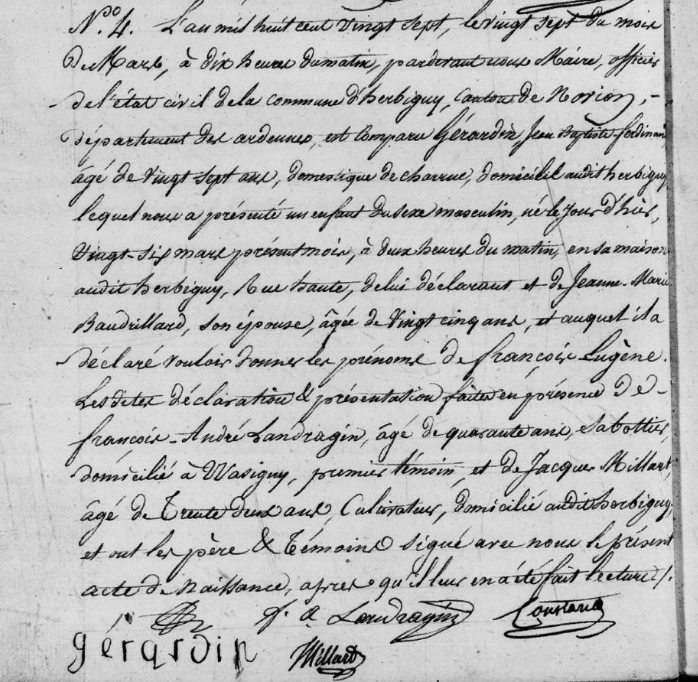 N.º 4. L'an mil huit cent vingt sept, le vingt sept du mois
De Mars, à dix heures du matin, pardevant nous Maire, officier
de l'état civil de la commune d'herbigny, Canton de Novion,
département des ardennes, est Comparu Gérardin, Jean Baptiste ferdinand
âgé de vingt sept ans, domestique de charrue, domicilié audit herbigny
lequel nous a présenté un enfant du sexe masculin, né le jour d'hier,
vingt-six mars présent mois, à deux heures du matin, en sa maison
audit herbigny, Rue haute, de lui déclarant et de Jeanne-Marie
Baudrillard, son épouse, âgée de vingt cinq ans, et auquel il a
déclaré vouloir donner les prénoms de françois Eugène.
Lesdites déclaration & présentation faites en présence De
françois-André Landragin, âgé de quarante ans, sabottier,
domicilié à Wasigny, premier témoin, et de Jacques Millart,
âgé de Trente deux ans, Cultivateur, domicilié audit herbigny
et ont les père & Témoins signé avec nous le présent
acte de Naissance, après qu'il leur en a été fait lecture /.
f. a Landragin
gérardin Millart